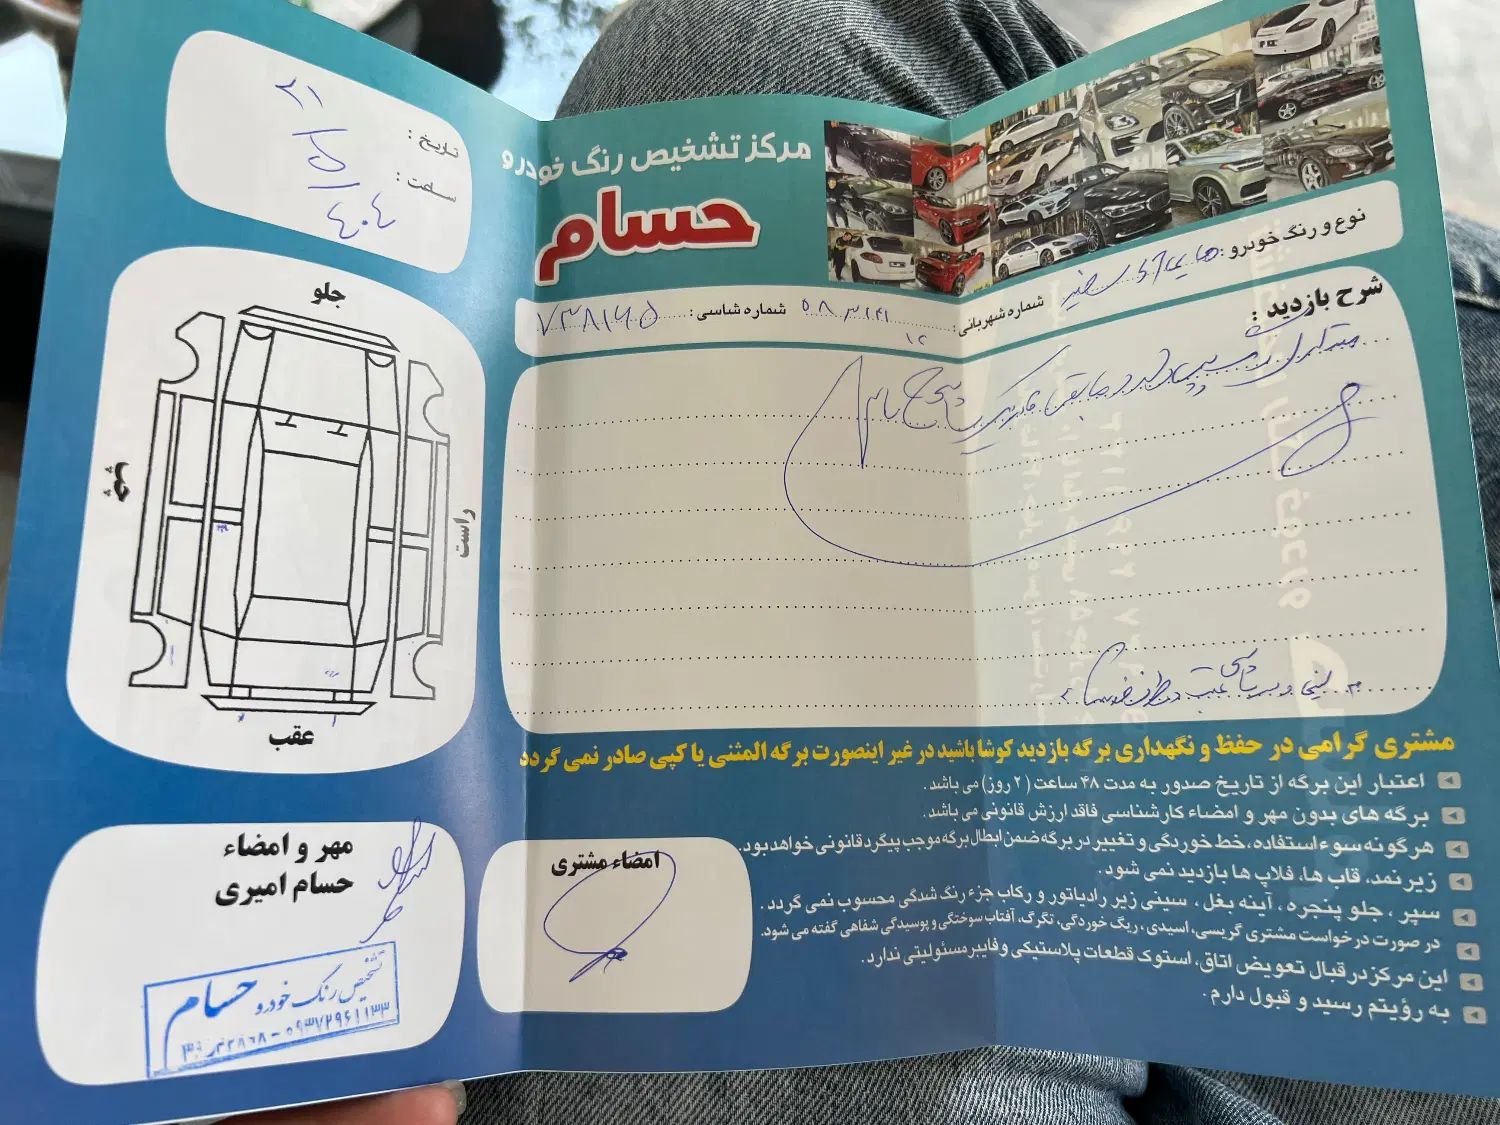 مرکز تشخیص رنگ خودرو
حسام
تاریخ :
۲۱/۵/۴۰۴
ساعت :
نوع و رنگ خودرو : سفید
شماره شهربانی :
شماره شاسی : ۷۳۸۱۶۵
شرح بازدید :
جلو
چپ
راست
عقب
مشتری گرامی در حفظ و نگهداری برگه بازدید کوشا باشید در غیر اینصورت برگه المثنی یا کپی صادر نمی گردد
اعتبار این برگه از تاریخ صدور به مدت ۴۸ ساعت (۲ روز) می باشد.
برگه های بدون مهر و امضاء کارشناسی فاقد ارزش قانونی می باشد.
هرگونه سوء استفاده، خط خوردگی و تغییر در برگه ضمن ابطال برگه موجب پیگرد قانونی خواهد بود.
زیر نمد، قاب ها، فلاپ ها بازدید نمی شود.
سپر ، جلو پنجره ، آینه بغل ، سینی زیر رادیاتور و رکاب جزء رنگ شدگی محسوب نمی گردد .
در صورت درخواست مشتری گریسی، اسیدی، ریگ خوردگی، تگرگ، آفتاب سوختگی و پوسیدگی شفاهی گفته می شود.
این مرکز در قبال تعویض اتاق، استوک قطعات پلاستیکی و فایبر مسئولیتی ندارد.
به رؤیتم رسید و قبول دارم.
امضاء مشتری
مهر و امضاء
حسام امیری
تشخیص رنگ خودرو حسام
۰۹۳۷۲۹۶۱۱۳۳